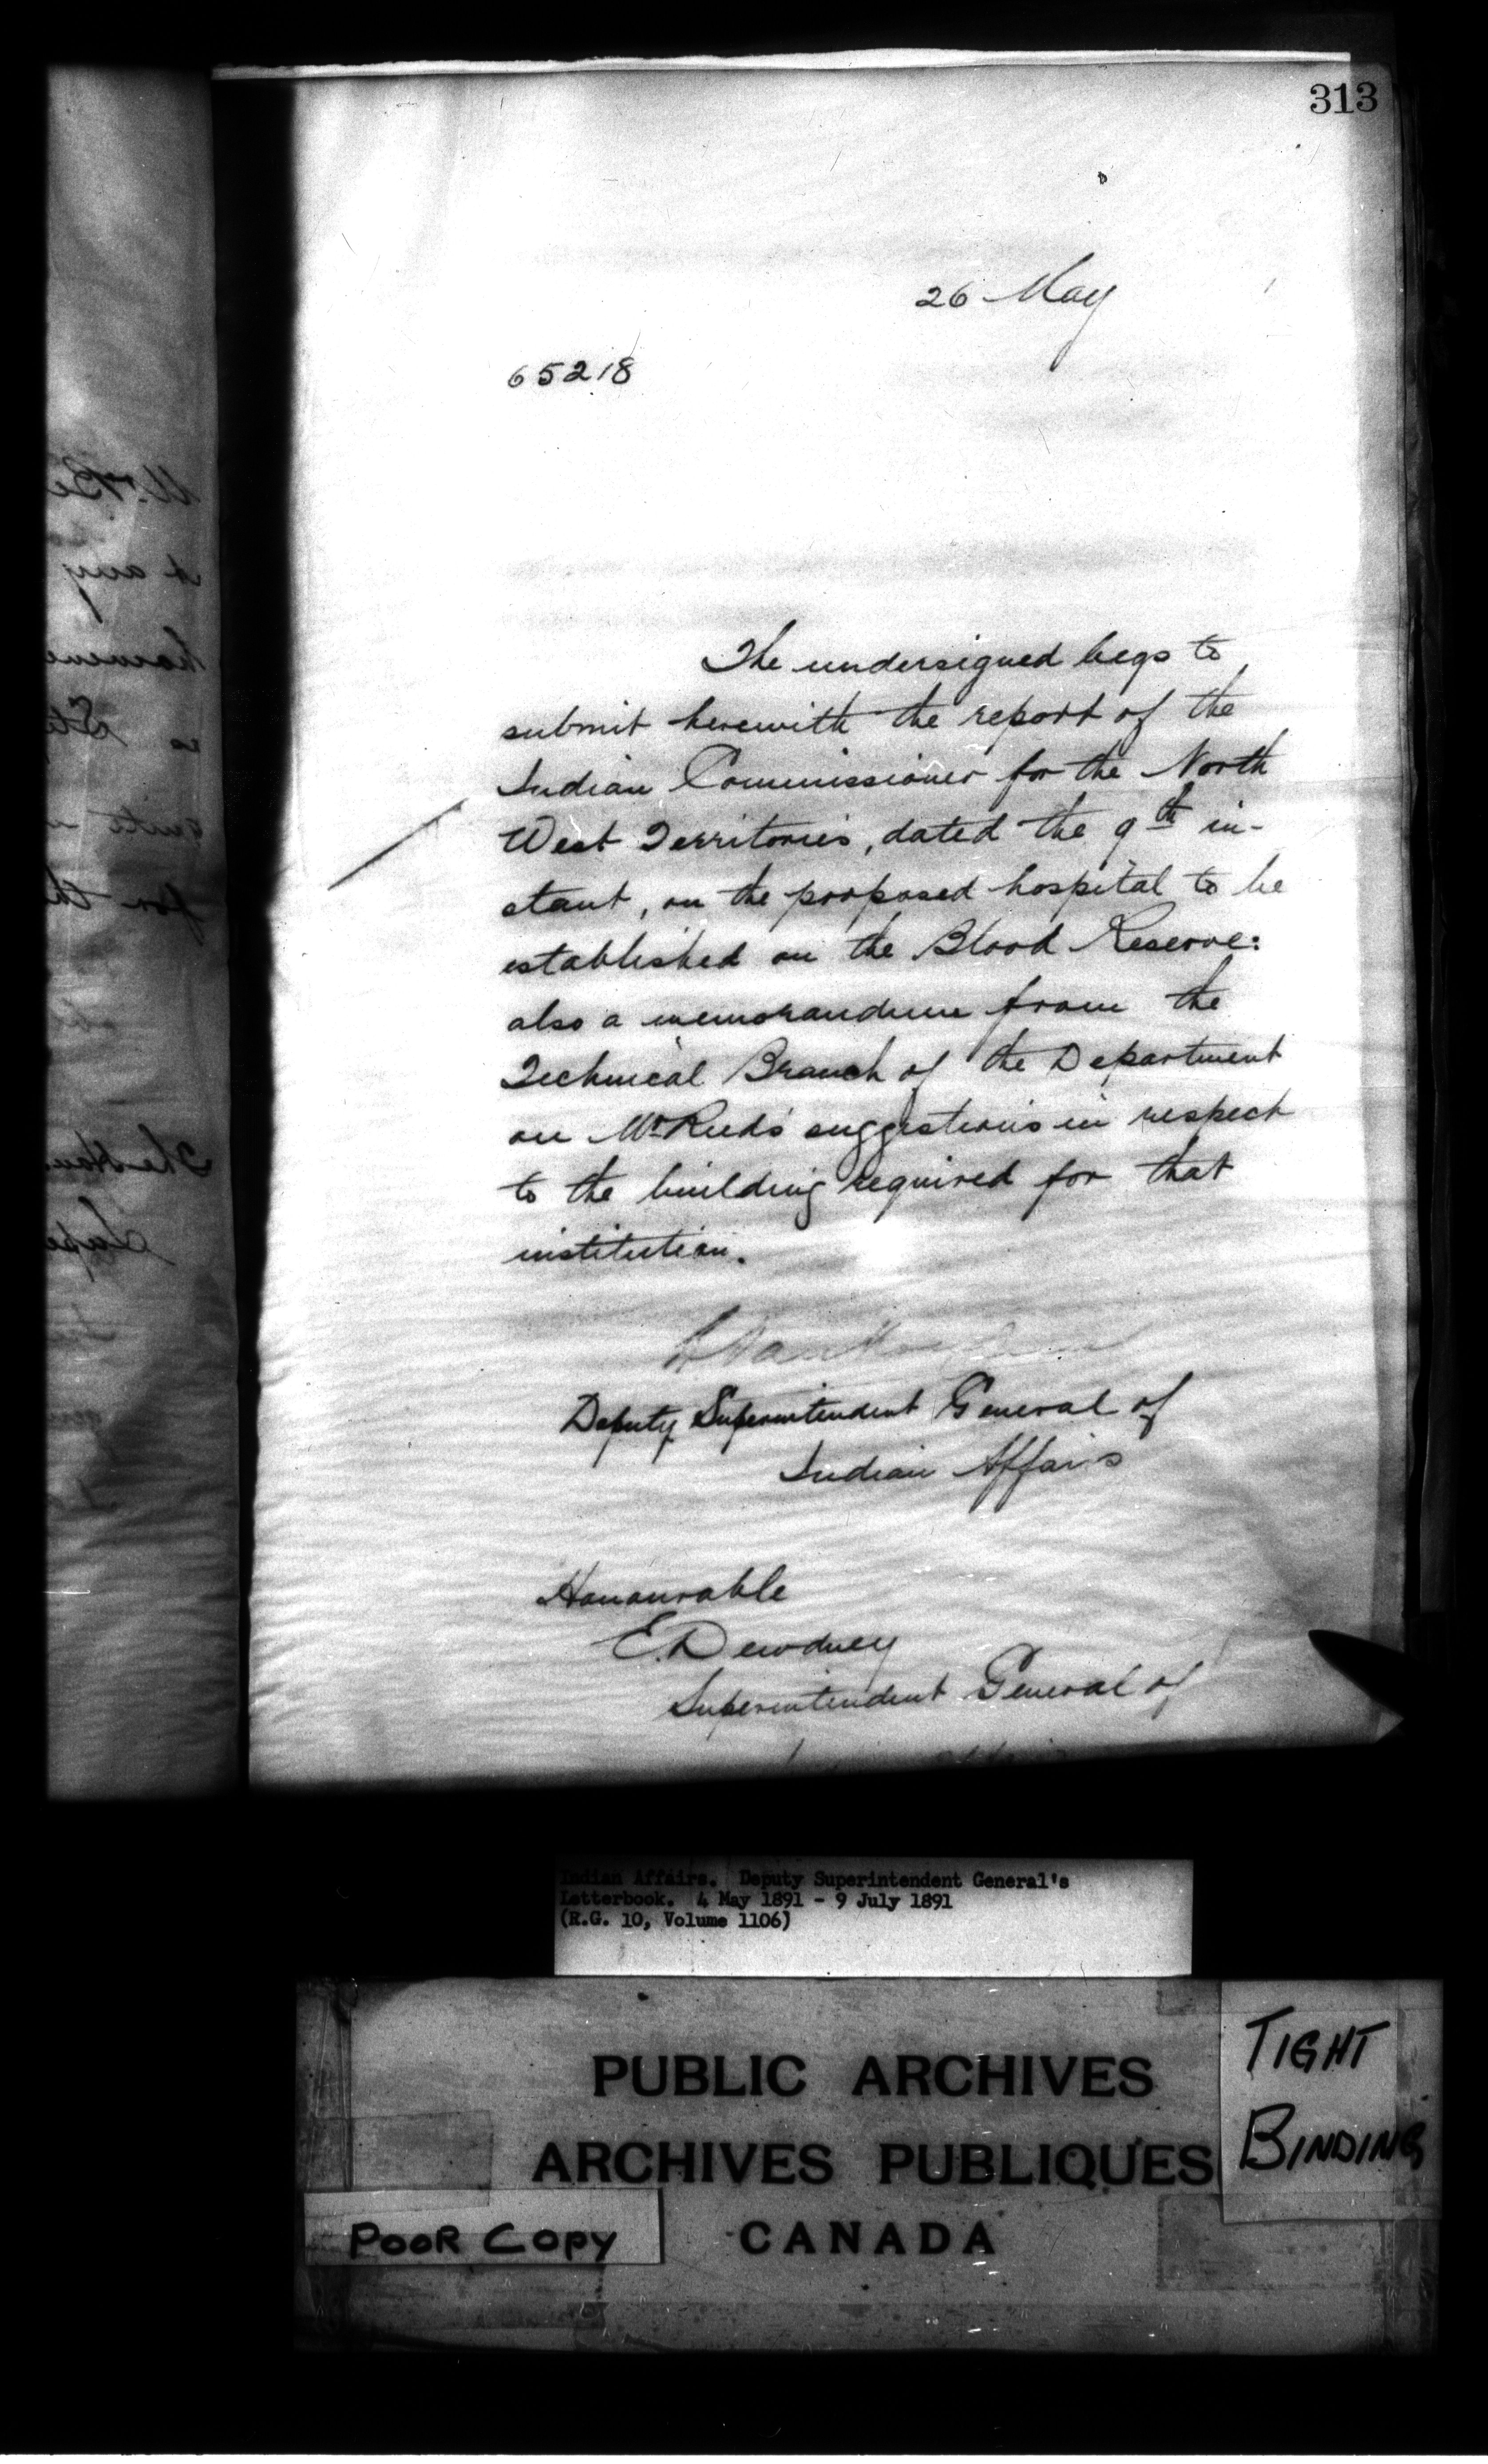 313
26 May
65218
The undersigned begs to
submit herewith the report of the
Indian Commissioner for the North
West Territories, dated the 9th in-
stant, on the proposed hospital to be
established on the Blood Reserve:
also a memorandum from the
Technical Branch of the Department
on Mr Reed's suggestions in respect
to the building required for that
institution.
Deputy Superintendent General of
Indian Affairs
Honourable
E. Dewdney
Superintendent General of
Indian Affairs. Deputy Superintendent General's
Letterbook. 4 May 1891 - 9 July 1891
(R.G. 10, Volume 1106)
PUBLIC ARCHIVES
ARCHIVES PUBLIQUES
CANADA
TIGHT
BINDING
POOR COPY